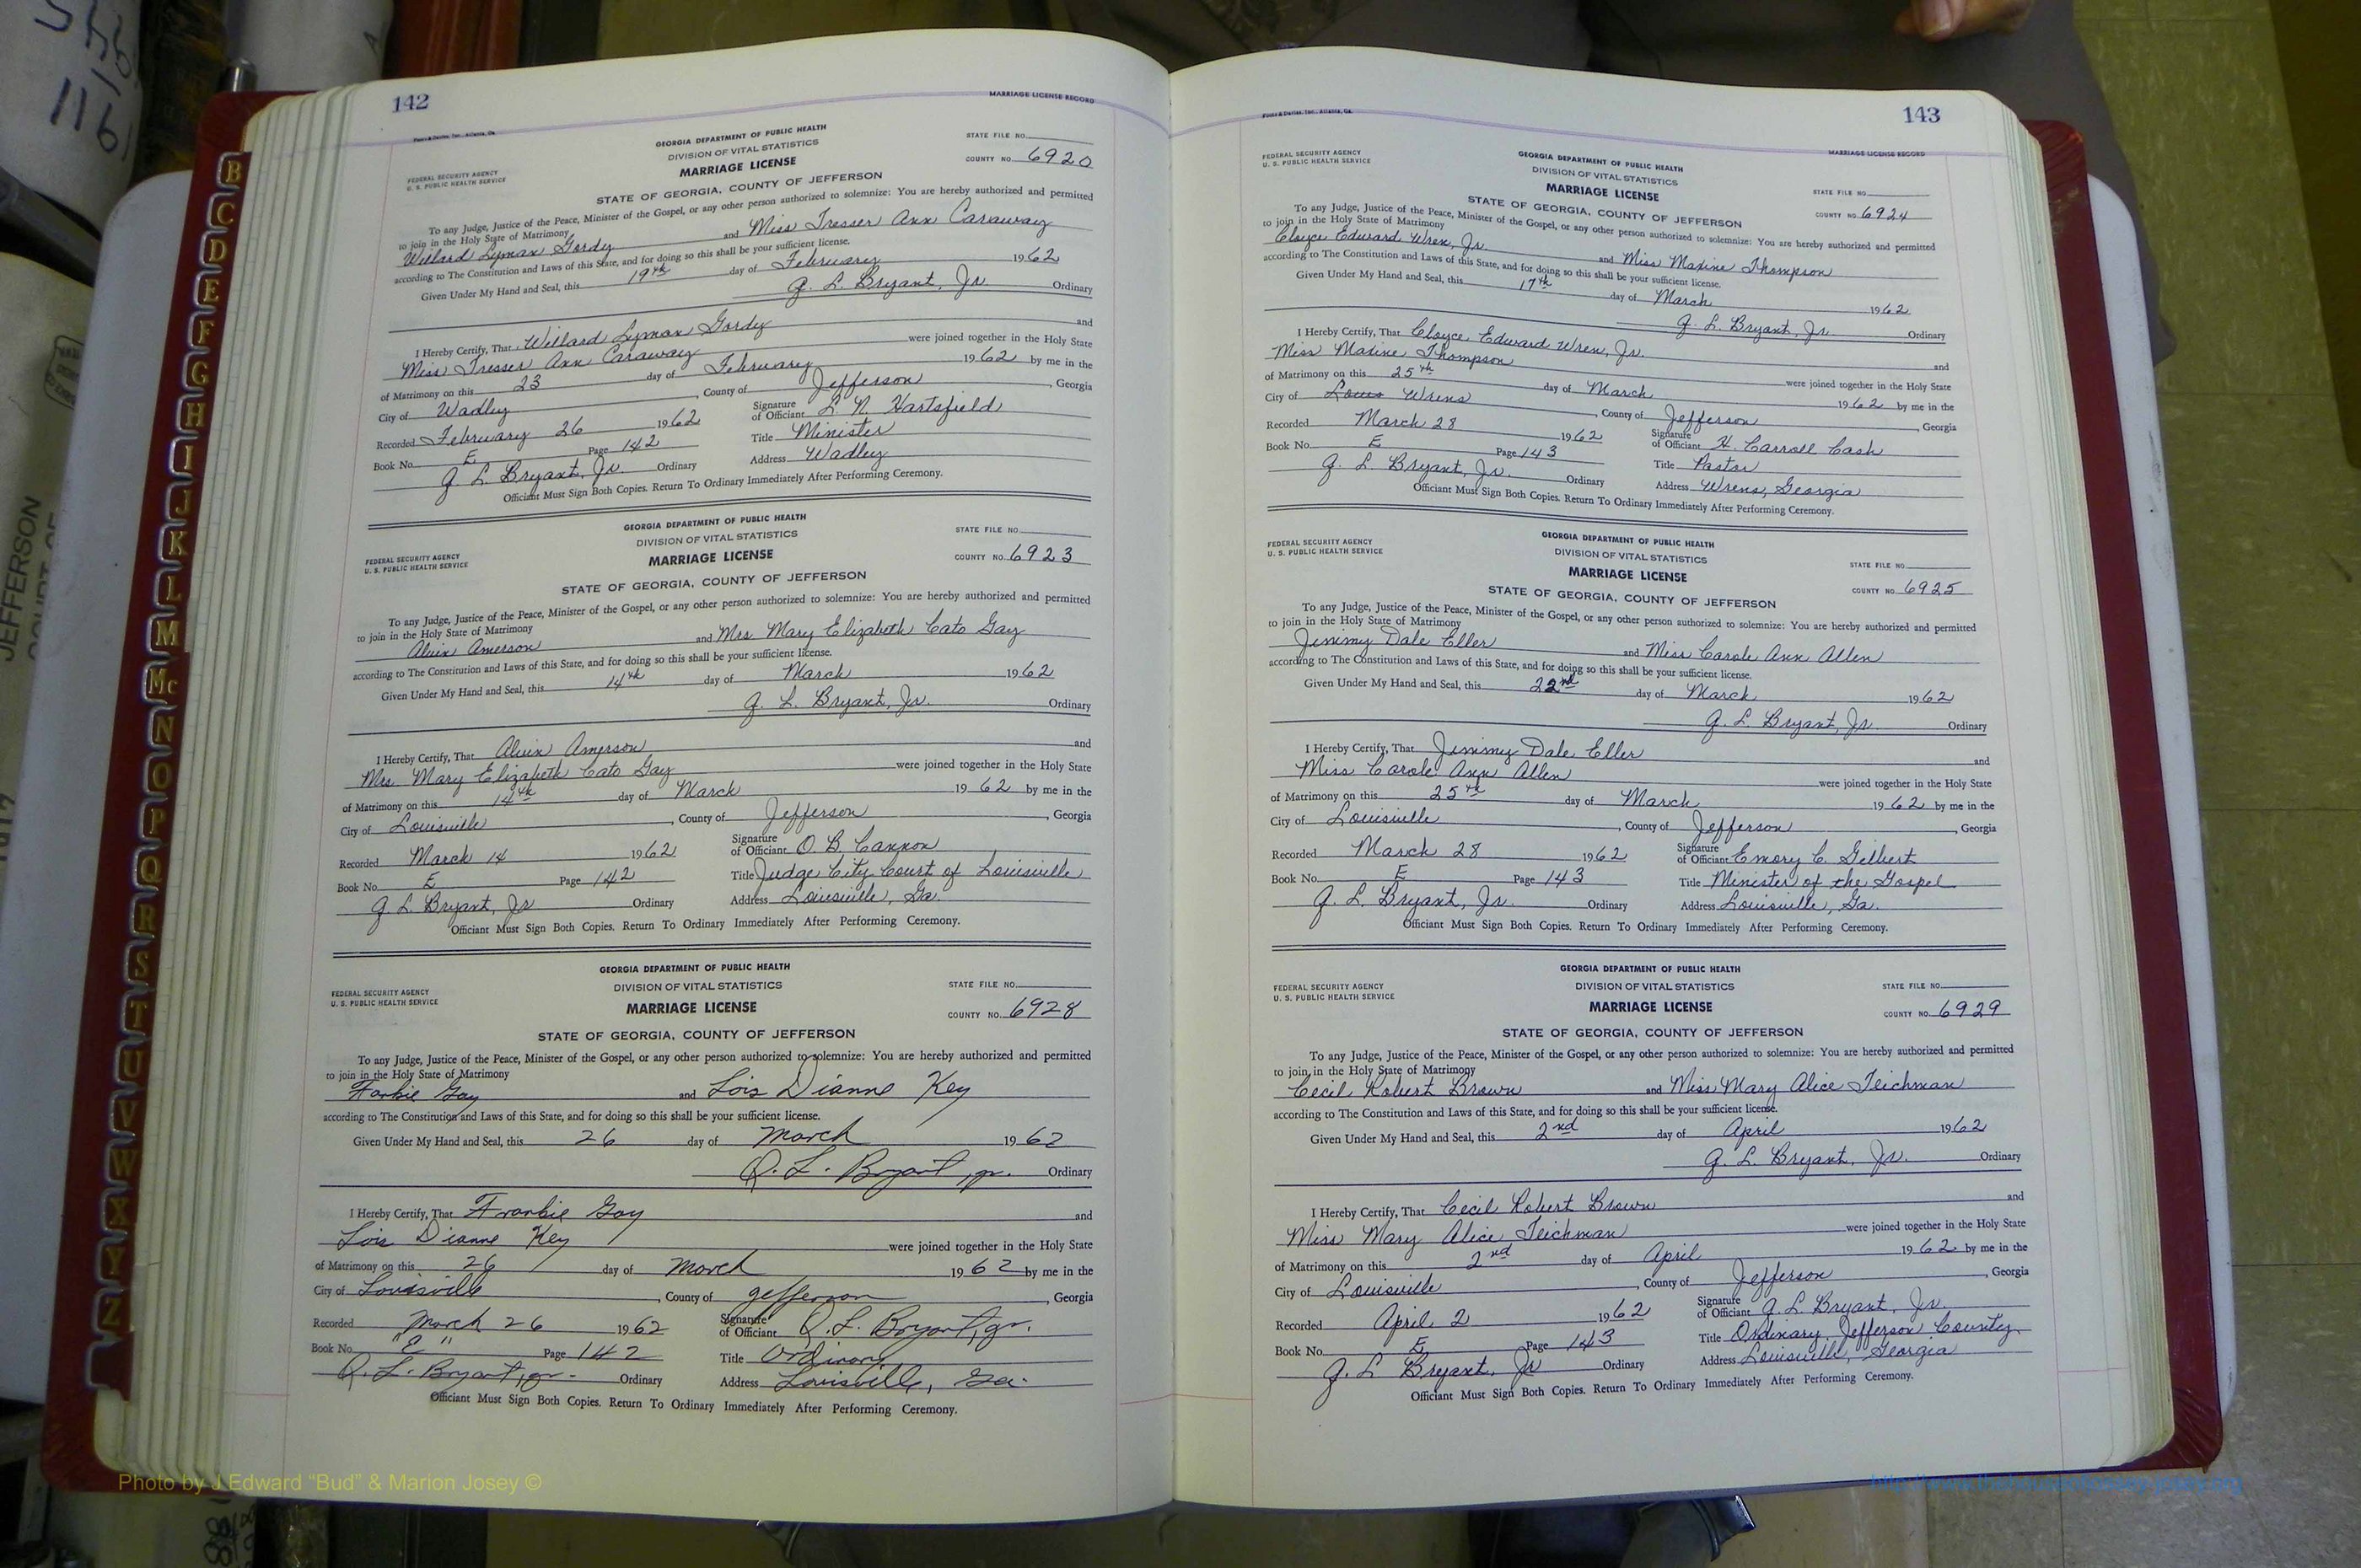 142
MARRIAGE LICENSE RECORD
GEORGIA DEPARTMENT OF PUBLIC HEALTH
DIVISION OF VITAL STATISTICS
MARRIAGE LICENSE
STATE FILE NO.
COUNTY NO. 6920
FEDERAL SECURITY AGENCY
U. S. PUBLIC HEALTH SERVICE
STATE OF GEORGIA, COUNTY OF JEFFERSON
To any Judge, Justice of the Peace, Minister of the Gospel, or any other person authorized to solemnize: You are hereby authorized and permitted
to join in the Holy State of Matrimony
Willard Lyman Gordy and Miss Tresser Ann Caraway
according to The Constitution and Laws of this State, and for doing so this shall be your sufficient license.
Given Under My Hand and Seal, this 19th day of February 1962
Q. L. Bryant, Jr. Ordinary
I Hereby Certify, That Willard Lyman Gordy and
Miss Tresser Ann Caraway were joined together in the Holy State
of Matrimony on this 23 day of February 1962 by me in the
City of Wadley, County of Jefferson, Georgia
Recorded February 26 1962 Signature of Officiant L. N. Hartsfield
Book No. E Page 142 Title Minister
Q. L. Bryant, Jr. Ordinary Address Wadley
Officiant Must Sign Both Copies. Return To Ordinary Immediately After Performing Ceremony.
GEORGIA DEPARTMENT OF PUBLIC HEALTH
DIVISION OF VITAL STATISTICS
MARRIAGE LICENSE
STATE FILE NO.
COUNTY NO. 6923
FEDERAL SECURITY AGENCY
U. S. PUBLIC HEALTH SERVICE
STATE OF GEORGIA, COUNTY OF JEFFERSON
To any Judge, Justice of the Peace, Minister of the Gospel, or any other person authorized to solemnize: You are hereby authorized and permitted
to join in the Holy State of Matrimony
Alvin Amerson and Mrs Mary Elizabeth Cato Gay
according to The Constitution and Laws of this State, and for doing so this shall be your sufficient license.
Given Under My Hand and Seal, this 14th day of March 1962
Q. L. Bryant, Jr. Ordinary
I Hereby Certify, That Alvin Amerson and
Mrs. Mary Elizabeth Cato Gay were joined together in the Holy State
of Matrimony on this 14th day of March 1962 by me in the
City of Louisville, County of Jefferson, Georgia
Recorded March 14 1962 Signature of Officiant O. B. Cannon
Book No. E Page 142 Title Judge City Court of Louisville
Q. L. Bryant, Jr Ordinary Address Louisville, Ga.
Officiant Must Sign Both Copies. Return To Ordinary Immediately After Performing Ceremony.
GEORGIA DEPARTMENT OF PUBLIC HEALTH
DIVISION OF VITAL STATISTICS
MARRIAGE LICENSE
STATE FILE NO.
COUNTY NO. 6928
FEDERAL SECURITY AGENCY
U. S. PUBLIC HEALTH SERVICE
STATE OF GEORGIA, COUNTY OF JEFFERSON
To any Judge, Justice of the Peace, Minister of the Gospel, or any other person authorized to solemnize: You are hereby authorized and permitted
to join in the Holy State of Matrimony
Frankie Gay and Lois Dianne Key
according to The Constitution and Laws of this State, and for doing so this shall be your sufficient license.
Given Under My Hand and Seal, this 26 day of March 1962
Q. L. Bryant, Jr. Ordinary
I Hereby Certify, That Frankie Gay and
Lois Dianne Key were joined together in the Holy State
of Matrimony on this 26 day of March 1962 by me in the
City of Louisville, County of Jefferson, Georgia
Recorded March 26 1962 Signature of Officiant Q. L. Bryant, Jr.
Book No. "E" Page 142 Title Ordinary
Q. L. Bryant, Jr. Ordinary Address Louisville, Ga.
Officiant Must Sign Both Copies. Return To Ordinary Immediately After Performing Ceremony.
143
MARRIAGE LICENSE RECORD
FEDERAL SECURITY AGENCY
U. S. PUBLIC HEALTH SERVICE
GEORGIA DEPARTMENT OF PUBLIC HEALTH
DIVISION OF VITAL STATISTICS
MARRIAGE LICENSE
STATE FILE NO.
COUNTY NO. 6924
STATE OF GEORGIA, COUNTY OF JEFFERSON
To any Judge, Justice of the Peace, Minister of the Gospel, or any other person authorized to solemnize: You are hereby authorized and permitted
to join in the Holy State of Matrimony
Cloyce Edward Wren, Jr. and Miss Maxine Thompson
according to The Constitution and Laws of this State, and for doing so this shall be your sufficient license.
Given Under My Hand and Seal, this 17th day of March 1962
Q. L. Bryant, Jr. Ordinary
I Hereby Certify, That Cloyce Edward Wren, Jr. and
Miss Maxine Thompson were joined together in the Holy State
of Matrimony on this 25th day of March 1962 by me in the
City of Wrens, County of Jefferson, Georgia
Recorded March 28 1962 Signature of Officiant H. Carroll Cash
Book No. E Page 143 Title Pastor
Q. L. Bryant, Jr. Ordinary Address Wrens, Georgia
Officiant Must Sign Both Copies. Return To Ordinary Immediately After Performing Ceremony.
FEDERAL SECURITY AGENCY
U. S. PUBLIC HEALTH SERVICE
GEORGIA DEPARTMENT OF PUBLIC HEALTH
DIVISION OF VITAL STATISTICS
MARRIAGE LICENSE
STATE FILE NO.
COUNTY NO. 6925
STATE OF GEORGIA, COUNTY OF JEFFERSON
To any Judge, Justice of the Peace, Minister of the Gospel, or any other person authorized to solemnize: You are hereby authorized and permitted
to join in the Holy State of Matrimony
Jimmy Dale Eller and Miss Carole Ann Allen
according to The Constitution and Laws of this State, and for doing so this shall be your sufficient license.
Given Under My Hand and Seal, this 22nd day of March 1962
Q. L. Bryant, Jr. Ordinary
I Hereby Certify, That Jimmy Dale Eller and
Miss Carole Ann Allen were joined together in the Holy State
of Matrimony on this 25th day of March 1962 by me in the
City of Louisville, County of Jefferson, Georgia
Recorded March 28 1962 Signature of Officiant Emory C. Gilbert
Book No. E Page 143 Title Minister of the Gospel
Q. L. Bryant, Jr. Ordinary Address Louisville, Ga.
Officiant Must Sign Both Copies. Return To Ordinary Immediately After Performing Ceremony.
FEDERAL SECURITY AGENCY
U. S. PUBLIC HEALTH SERVICE
GEORGIA DEPARTMENT OF PUBLIC HEALTH
DIVISION OF VITAL STATISTICS
MARRIAGE LICENSE
STATE FILE NO.
COUNTY NO. 6929
STATE OF GEORGIA, COUNTY OF JEFFERSON
To any Judge, Justice of the Peace, Minister of the Gospel, or any other person authorized to solemnize: You are hereby authorized and permitted
to join in the Holy State of Matrimony
Cecil Robert Brown and Miss Mary Alice Teichman
according to The Constitution and Laws of this State, and for doing so this shall be your sufficient license.
Given Under My Hand and Seal, this 2nd day of April 1962
Q. L. Bryant, Jr. Ordinary
I Hereby Certify, That Cecil Robert Brown and
Miss Mary Alice Teichman were joined together in the Holy State
of Matrimony on this 2nd day of April 1962 by me in the
City of Louisville, County of Jefferson, Georgia
Recorded April 2 1962 Signature of Officiant Q. L. Bryant, Jr.
Book No. E Page 143 Title Ordinary, Jefferson County
Q. L. Bryant, Jr Ordinary Address Louisville, Georgia
Officiant Must Sign Both Copies. Return To Ordinary Immediately After Performing Ceremony.
B
C
D
E
F
G
H
I
J
K
L
M
Mc
N
O
P
Q
R
S
T
U
V
W
X
Y
Z
JEFFERSON
Photo by J Edward “Bud” & Marion Josey ©